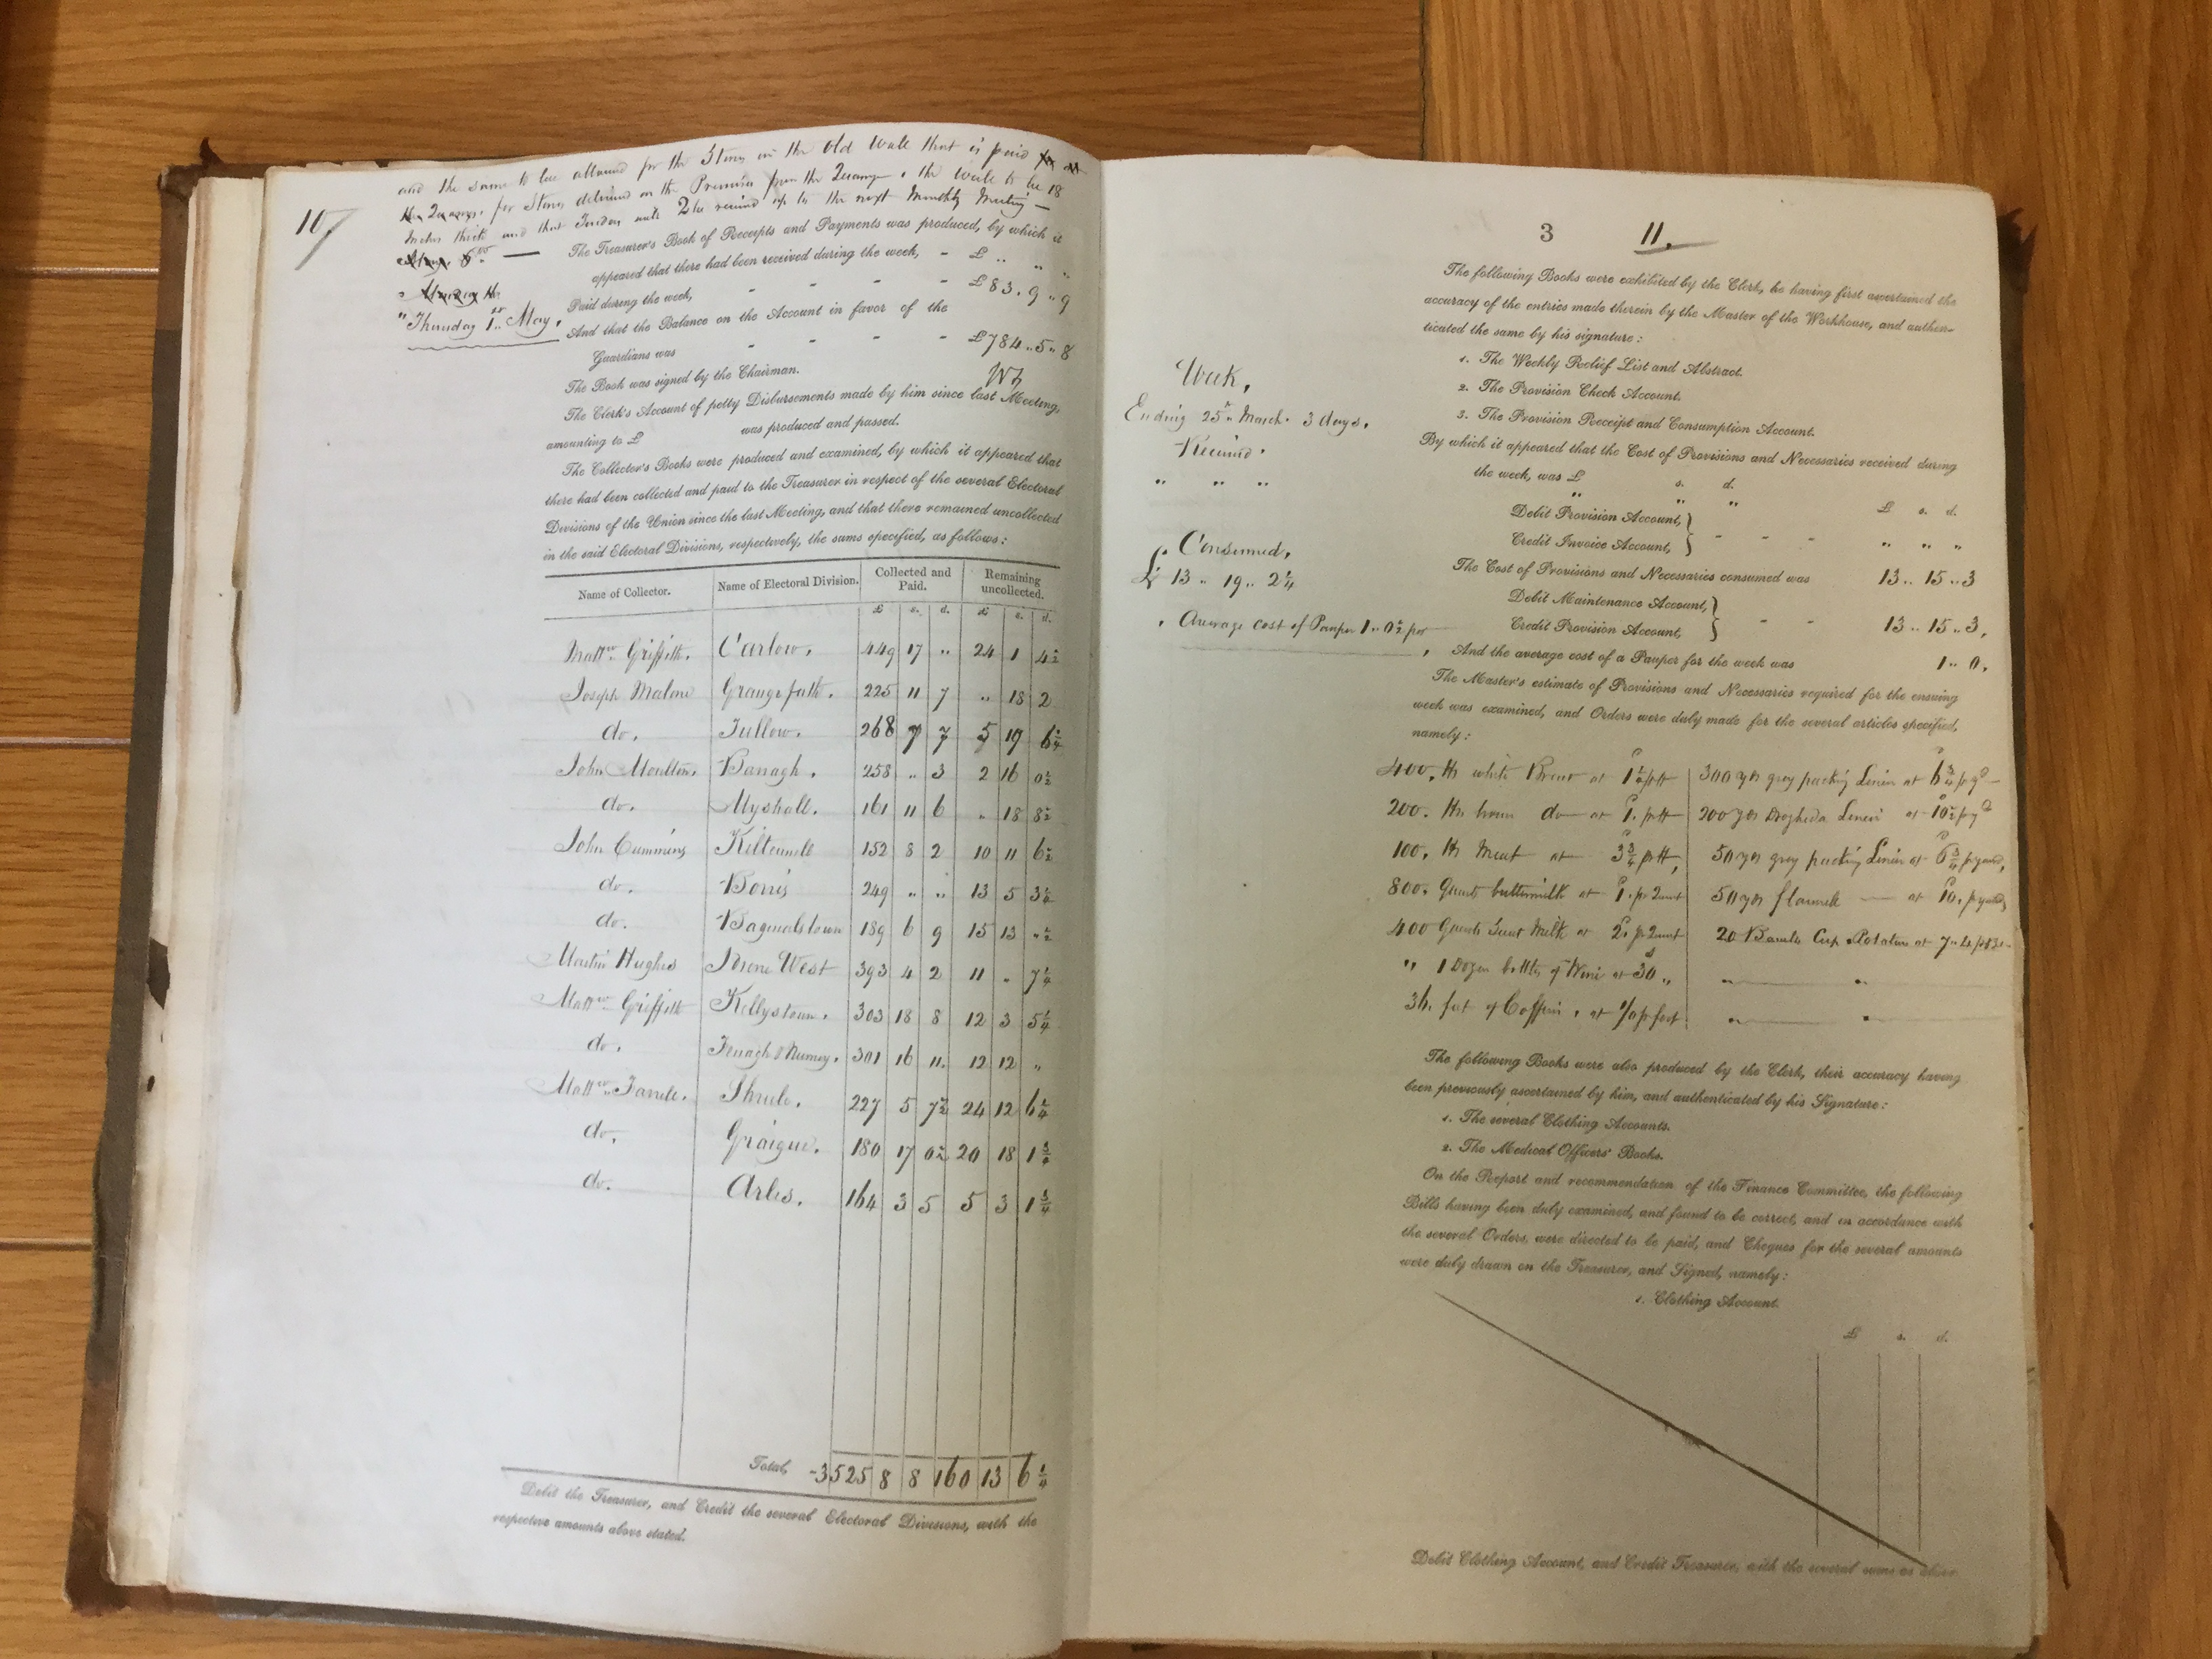 10
and the same to be allowed for the Stones in the Old Wall that is paid for at
the Quarry. for Stones delivered on the Premises from the Quarry. the Wall to be 18
Inches thick and that Tenders will be received up to the next Monthly Meeting —
"Thursday 1st. May.
The Treasurer's Book of Receipts and Payments was produced, by which it
appeared that there had been received during the week, - £ " " "
Paid during the week, - - - - £83. 9 " 9
And that the Balance on the Account in favor of the
Guardians was - - - - £784 " 5 " 8
The Book was signed by the Chairman.
The Clerk's Account of petty Disbursements made by him since last Meeting,
amounting to £ was produced and passed.
The Collector's Books were produced and examined, by which it appeared that
there had been collected and paid to the Treasurer in respect of the several Electoral
Divisions of the Union since the last Meeting, and that there remained uncollected
in the said Electoral Divisions, respectively, the sums specified, as follows:
Name of Collector. Name of Electoral Division. Collected and Paid. Remaining uncollected.
£ s. d. £ s. d.
Mattw. Griffith. Carlow. 449 17 " 24 1 4½
Joseph Malone Grangeforth. 225 11 7 " 18 2
do. Tullow. 268 7 7 5 19 6¼
John Moulton. Barragh. 258 " 3 2 16 0½
do. Myshall. 161 11 6 " 18 8½
John Cummins Kiltennell 152 8 2 10 11 6½
do. Borris 249 " " 13 5 3½
do. Bagnalstown 189 6 9 15 13 "½
Martin Hughes Idrone West 393 4 2 11 " 7¼
Mattw. Griffith Kellystown. 303 18 8 12 3 5¼
do. Fenagh & Nurney. 301 16 11. 12 12 "
Mattw. Farrell. Shrule. 227 5 7½ 24 12 6¼
do. Graigue. 180 17 0½ 20 18 1¾
do. Arles. 164 3 5 5 3 1¾
Total, -3525 8 8 160 13 6¼
Debit the Treasurer, and Credit the several Electoral Divisions, with the
respective amounts above stated.
3 11.
The following Books were exhibited by the Clerk, he having first ascertained the
accuracy of the entries made therein by the Master of the Workhouse, and authen-
ticated the same by his signature:
1. The Weekly Relief List and Abstract.
2. The Provision Check Account.
3. The Provision Receipt and Consumption Account.
By which it appeared that the Cost of Provisions and Necessaries received during
the week, was £ s. d.
" " "
£ s. d.
Debit Provision Account, }
Credit Invoice Account, } - - - " " "
The Cost of Provisions and Necessaries consumed was 13 " 15 " 3
Debit Maintenance Account, }
Credit Provision Account, } - - 13 " 15 " 3,
And the average cost of a Pauper for the week was 1 " 0,
Week,
Ending 25th March. 3 days.
Received.
" " "
Consumed,
£ 13 " 19 " 2¼
Average cost of Pauper 1 " 0½ per
The Master's estimate of Provisions and Necessaries required for the ensuing
week was examined, and Orders were duly made for the several articles specified,
namely:
400. lbs white Bread at 1½ p lb 300 yds grey packing Linen at 6¾ p yd
200. lbs brown do at 1. p lb 200 yds Drogheda Linen at 10½ p yd
100. lbs Meat at 3¾ p lb, 50 yds grey packing Linen at 6¾ p yard,
800. Quarts buttermilk at 1. p Quart 50 yds flannel — at 10. p yard,
400 Quarts Sweet Milk at 2. p Quart 20 Barrels Cup Potatoes at 7 " 4 p
" 1 Dozen bottles of Wine at 30 " " "
36. feet of Coffin. at 1/0 p foot " "
The following Books were also produced by the Clerk, their accuracy having
been previously ascertained by him, and authenticated by his Signature:
1. The several Clothing Accounts.
2. The Medical Officers' Books.
On the Report and recommendation of the Finance Committee, the following
Bills having been duly examined, and found to be correct, and in accordance with
the several Orders, were directed to be paid, and Cheques for the several amounts
were duly drawn on the Treasurer, and Signed, namely:
1. Clothing Account.
£ s. d.
Debit Clothing Account, and Credit Treasurer, with the several sums as above